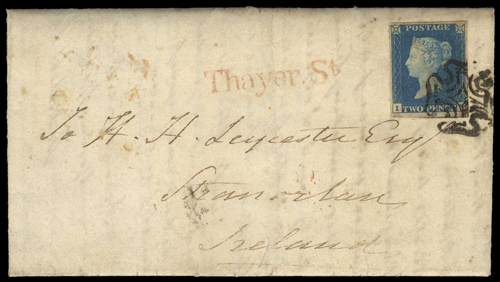 POSTAGE
TWO PENCE
I
Thayer St
To H. H. Leycester Esq
Stranorlan
Ireland